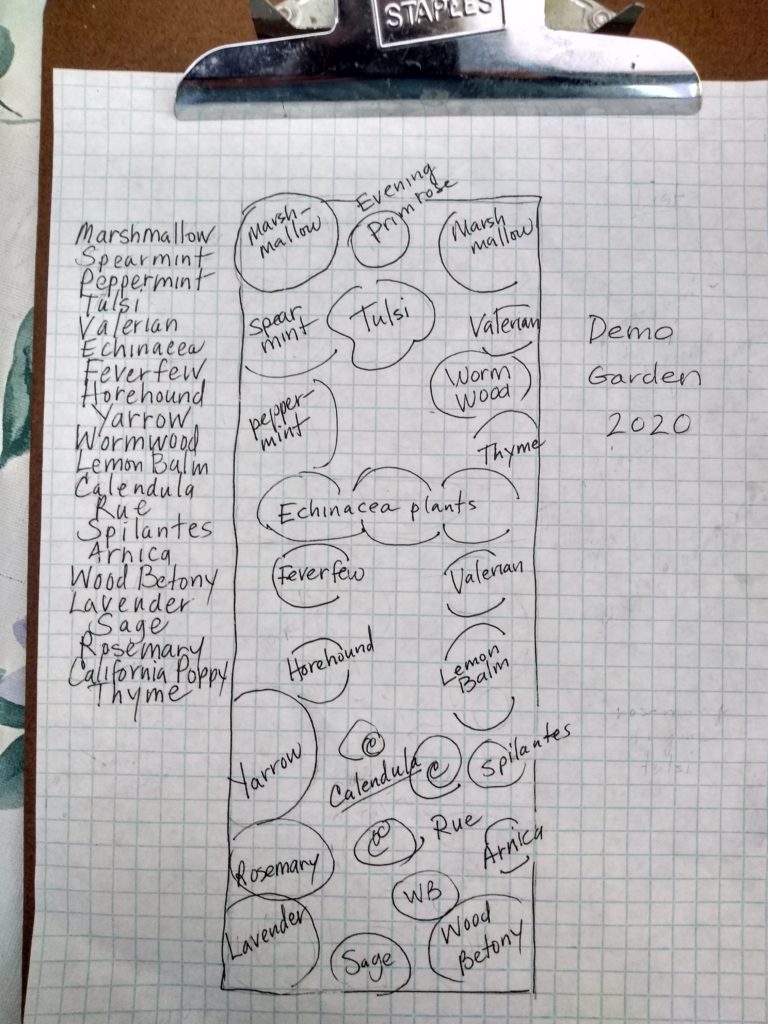 STAPLES
Marshmallow
Spearmint
Peppermint
Tulsi
Valerian
Echinacea
Feverfew
Horehound
Yarrow
Wormwood
Lemon Balm
Calendula
Rue
Spilantes
Arnica
Wood Betony
Lavender
Sage
Rosemary
California Poppy
Thyme
Marsh-
mallow
Evening
Primrose
Marsh
mallow
Spear
mint
Tulsi
Valerian
Worm
Wood
pepper-
mint
Thyme
Echinacea plants
Feverfew
Valerian
Horehound
Lemon
Balm
Yarrow
C
Calendula
C
Spilantes
C
Rue
Arnica
Rosemary
WB
Lavender
Sage
Wood
Betony
Demo
Garden
2020